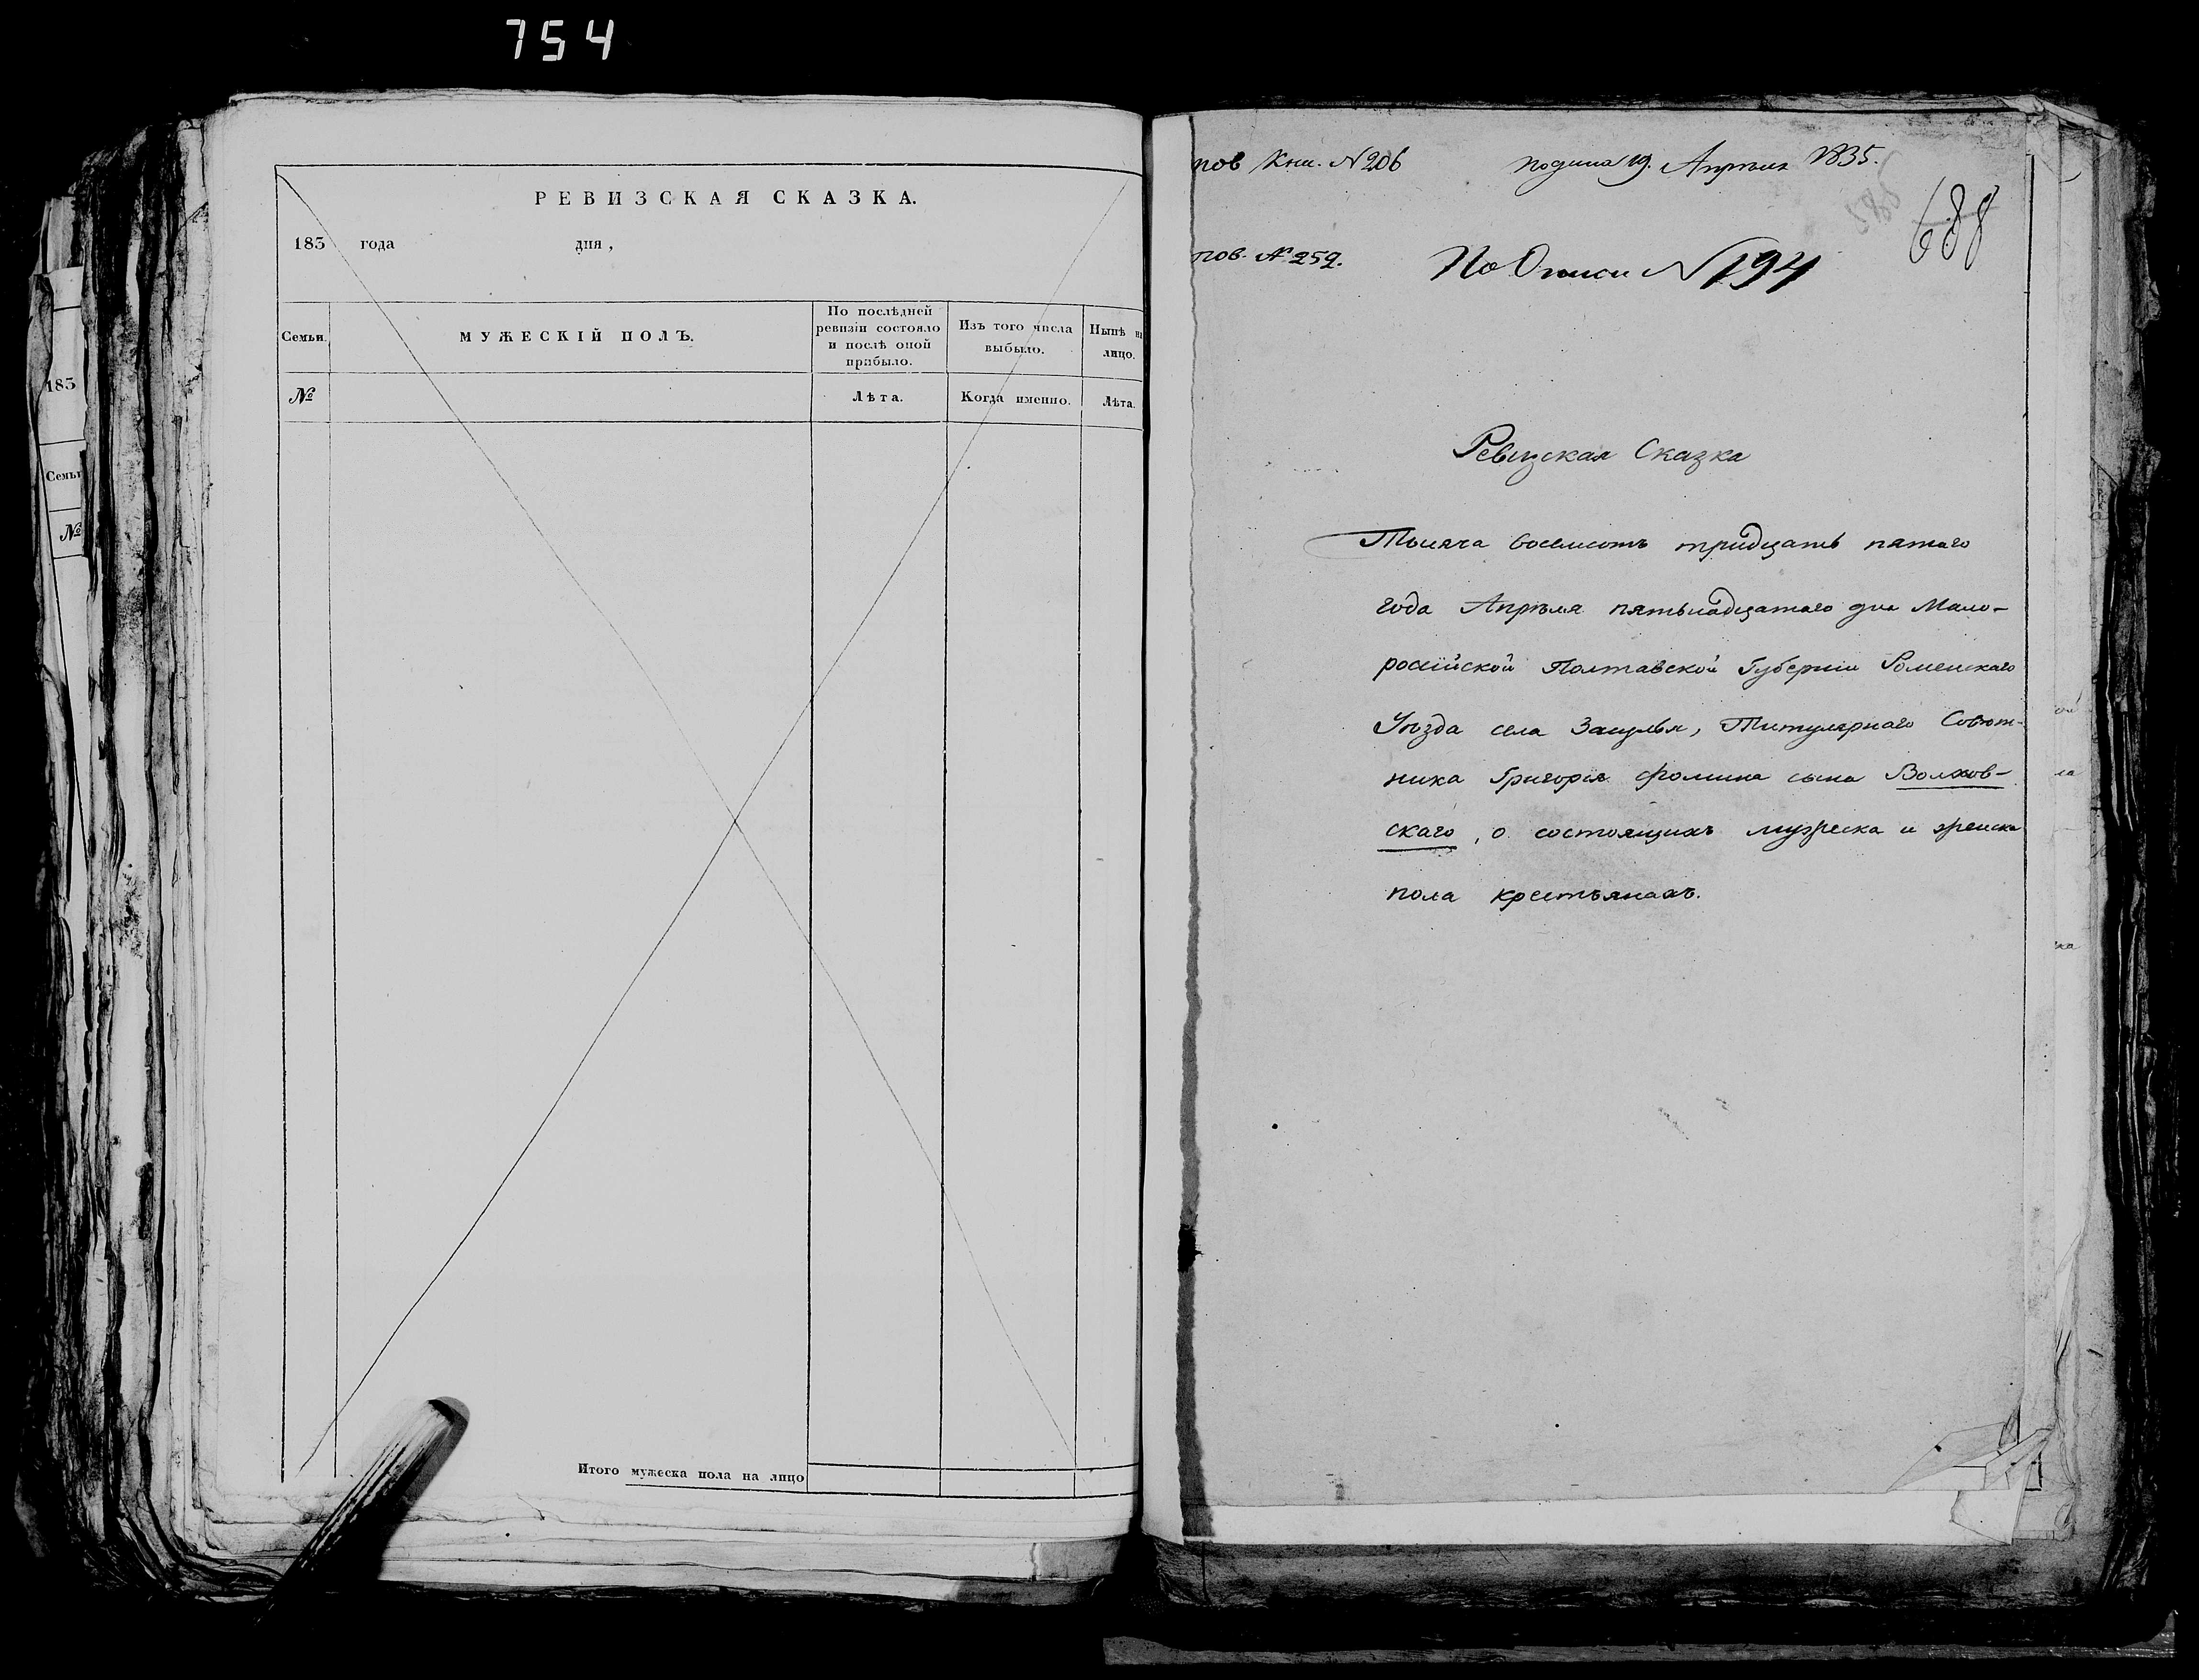 754
183
Семьи
№
РЕВИЗСКАЯ СКАЗКА.
183 года дня,
Семьи.
МУЖЕСКІЙ ПОЛЪ.
По послѣдней
ревизіи состояло
и послѣ оной
прибыло.
Изъ того числа
выбыло.
Нынѣ на
лицо.
№
Лѣта.
Когда именно.
Лѣта.
Итого мужеска пола на лицо
пов Кни. N 206 подана 19. Апрѣля 1835.
585
688
пов. № 259.
По Описи N 194
Ревизская Сказка
Тысяча восемсотъ тридцать пятаго
года Апрѣля пятьнадцатаго дня Мало-
россійской Полтавской Губерніи Роменскаго
Уѣзда села Засулья, Титулярнаго Совѣт-
ника Григорія Фомина сына Волхов-
скаго, о состоящихъ мужеска и женска
пола крестьянахъ.